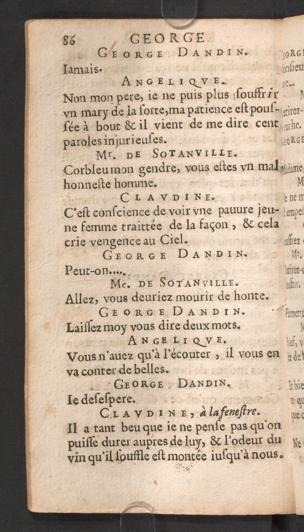 86 GEORGE
GEORGE DANDIN.
Iamais.
ANGELIQVE.
Non mon pere, ie ne puis plus souffrir
vn mary de la sorte, ma patience est pous-
sée à bout & il vient de me dire cent
paroles injurieuses.
Mr. DE SOTANVILLE.
Corbleu mon gendre, vous estes vn mal-
honneste homme.
CLAVDINE.
C'est conscience de voir vne pauure jeu-
ne femme traittée de la façon, & cela
crie vengence au Ciel.
GEORGE DANDIN.
Peut-on....
Mc. DE SOTANVILLE.
Allez, vous deuriez mourir de honte.
GEORGE DANDIN.
Laissez moy vous dire deux mots.
ANGELIQVE.
Vous n'auez qu'à l'écouter, il vous en
va conter de belles.
GEORGE DANDIN.
Ie desespere.
CLAVDINE, à la fenestre.
Il a tant beu que ie ne pense pas qu'on
puisse durer aupres de luy, & l'odeur du
vin qu'il souffle est montée iusqu'à nous.